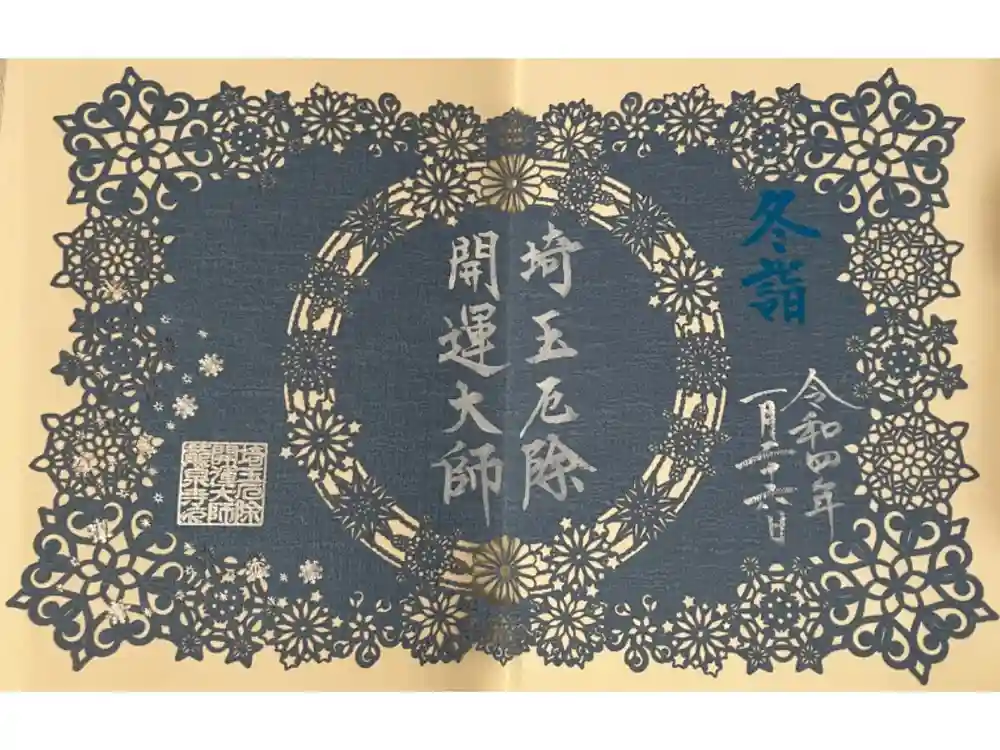 冬詣
令和四年
一月二十六日
埼玉厄除
開運大師
埼玉厄除
開運大師
龍泉寺印